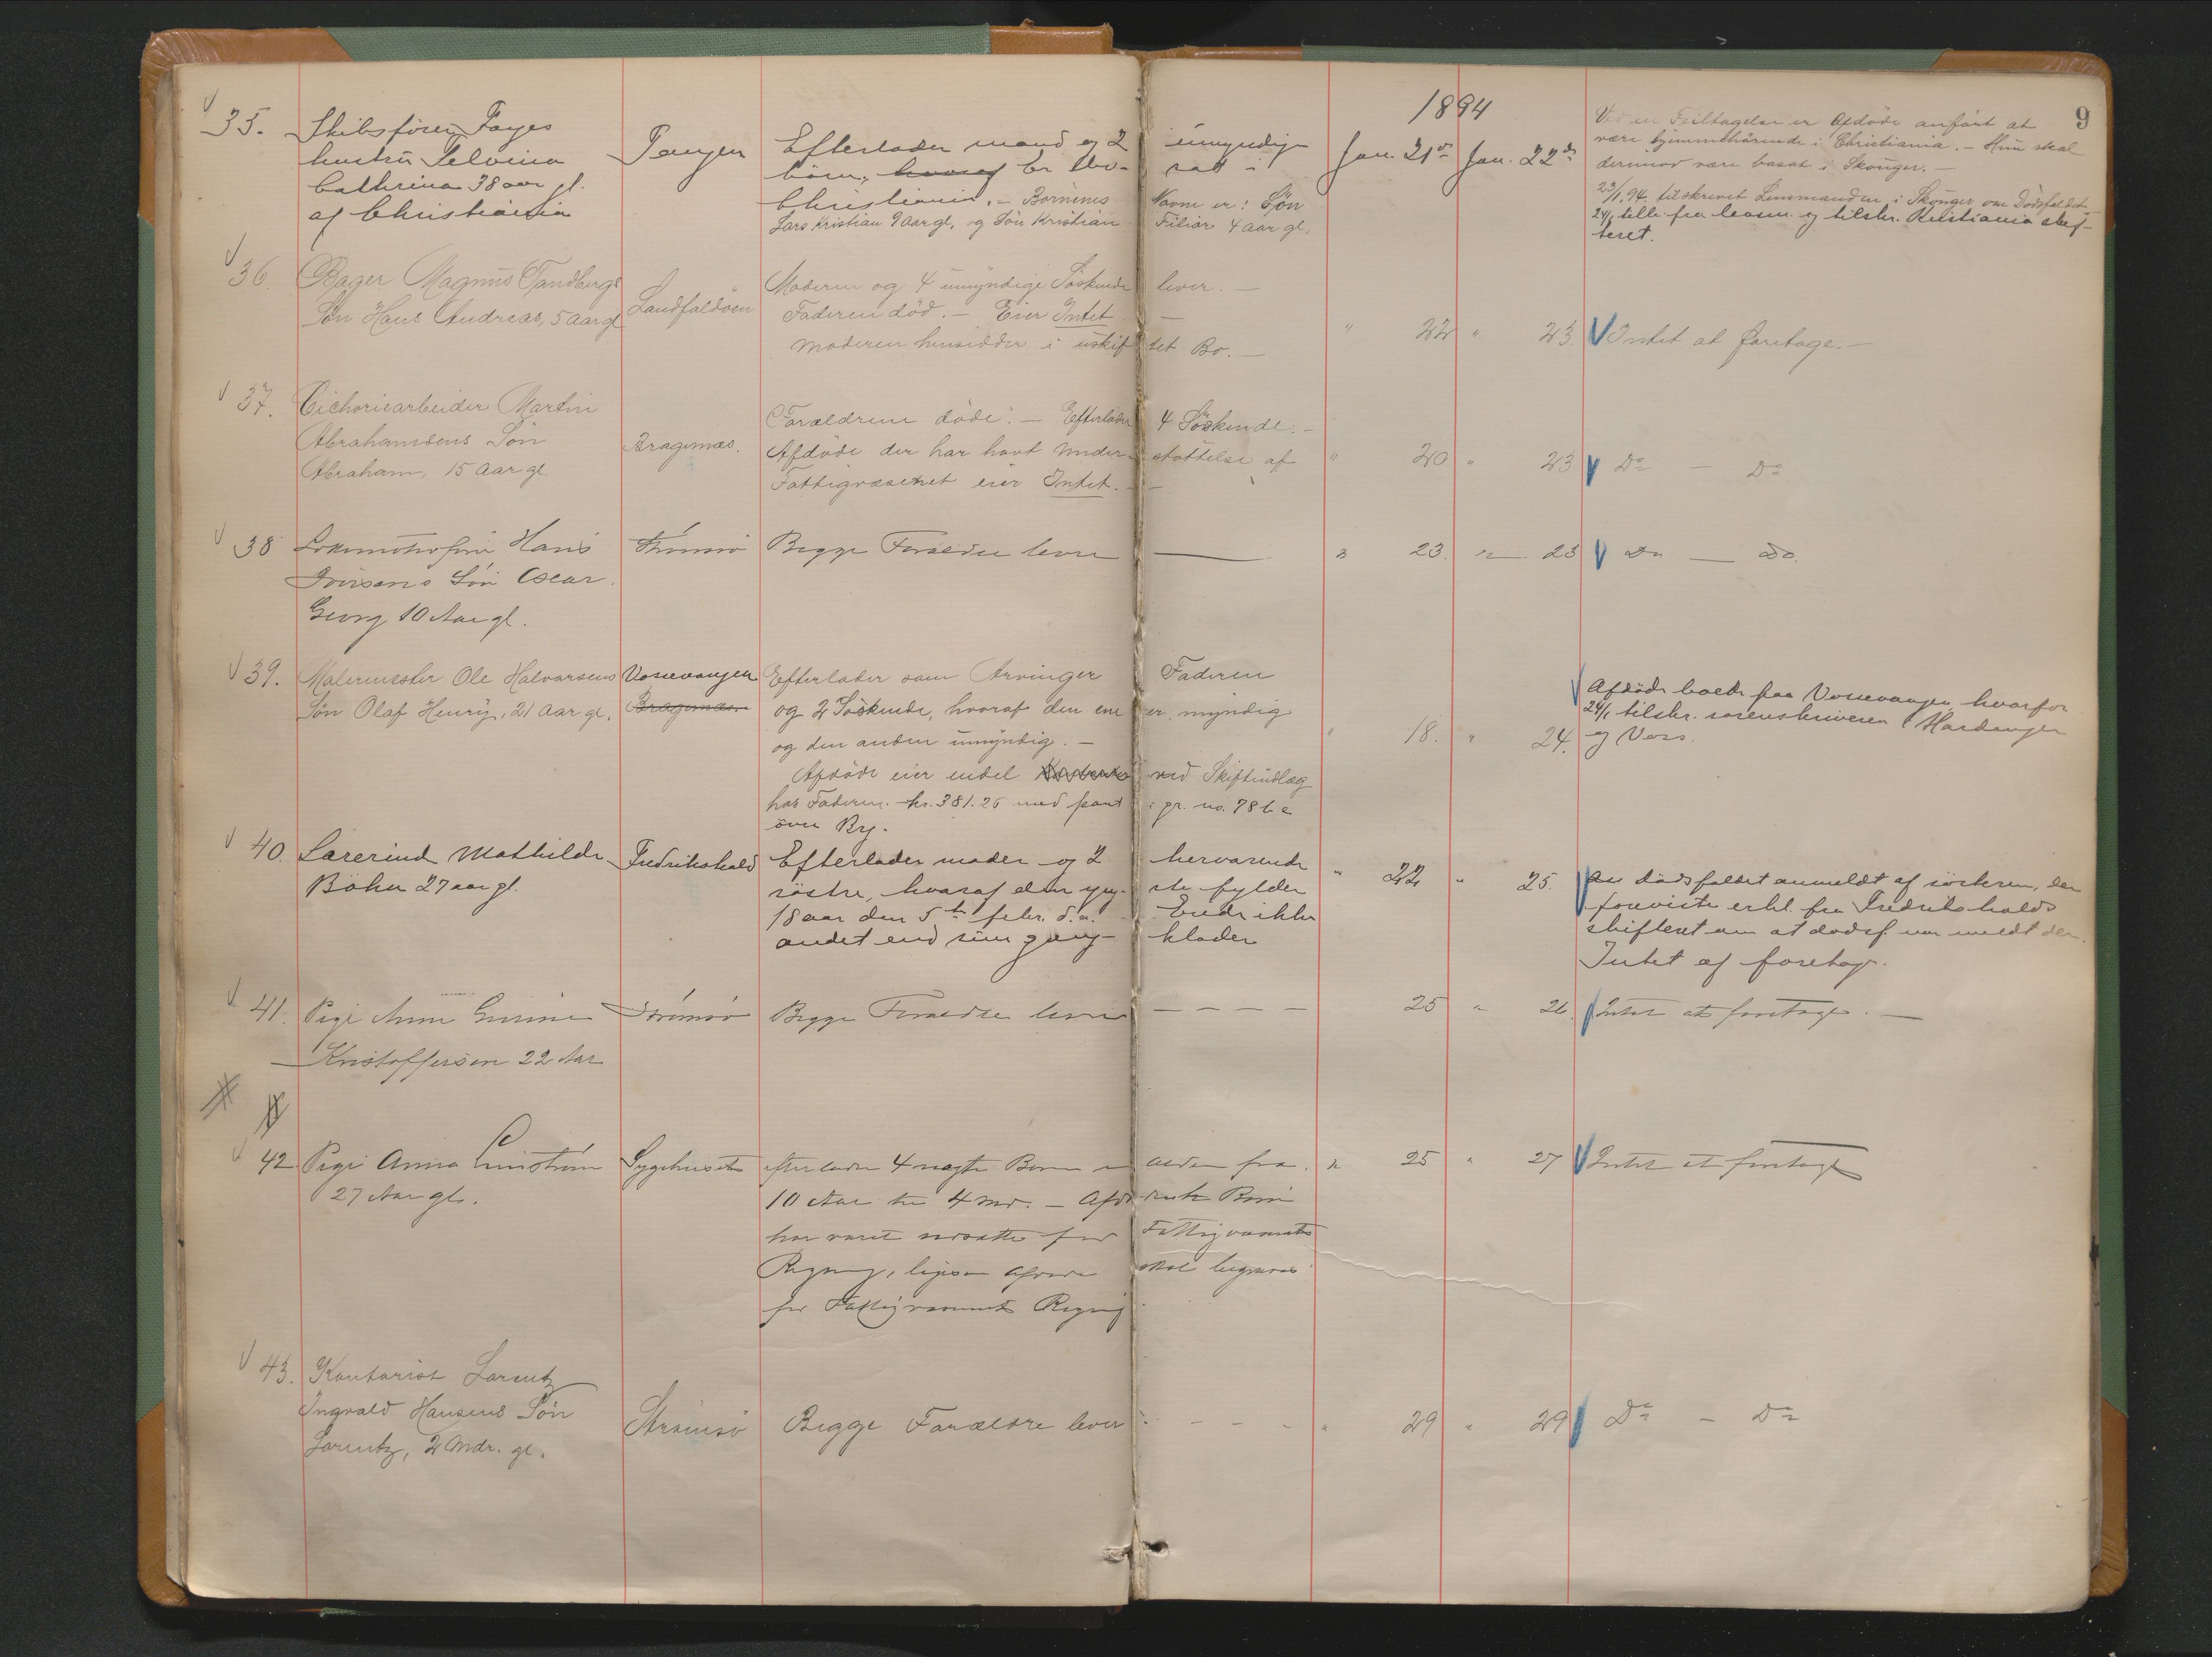 1894
9
35. Skibsfører Foyes
hustru Selvina
Cathrina 38 aar gl.
af Christiania
Tangen
Efterlader mand og 2 umyndige
börn, hvoraf Er bo- satt i
Christiania. - Börnenes Navne er: Sön
Lars Kristian 9 aar gl. og Sön Kristian Filior 4 aar gl.
Jan. 21de Jan. 22de
Ved en Feiltagelse er Afdöde anfört at
være hjemmehörende i Christiania. - Hun skal
derimod være bosat i Skouger. -
23/1 94 tilskrevet Lensmanden i Skouger om Dödsfaldet
24/1 fra lensm. og tilskr. Kristiania skif-
teret.
36. Bager Magnus Tandbergs
Sön Hans Andreas, 5 Aar gl
Landfaldöen
Moderen og 4 umyndige Söskende lever. -
Faderen död. - Eier Intet -
Moderen hensidder i uskif tet Bo. -
" 22 " 23. Intet at foretage. -
37. Cichoriearbeider Martin
Abrahamsens Sön
Abraham, 15 Aar gl.
Bragernæs.
Forældrene döde. - Efterlader 4 Söskende. -
Afdöde der har havt Under- stöttelse af
Fattigvæsenet eier Intet. -
" 20 " 23 Do - Do
38 Lokomotivförer Hans
Iversens Sön Oscar
Georg 10 Aar gl.
Strømsø
Begge Forældre lever
" 23. " 23 Do - Do.
39. Malermester Ole Halvorsens
Sön Olaf Henry, 21 Aar gl.
Vossevangen
Bragernæs
Efterlader som Arvinger Faderen
og 2 Söskende, hvoraf den ene er myndig
og den anden umyndig. -
Afdöde eier endel ved Skifteudlæg
hos Faderen. kr. 381.26 med pant i gr. no. 786 a
över By.
" 18. " 24.
Afdöde boede paa Vossevangen, hvorfor
24/1 tilskr. sorenskriveren i Hardanger
og Voss.
40. Lærerinde Mathilde
Böhn 27 aar gl.
Fredrikshald
Efterlader moder og 2 herværende
söstre, hvoraf den yng- ste fylder
18 aar den 5te febr. d.a. Eiede ikke
andet end sine gang- klæder
" 22 " 25.
dödsfaldet anmeldt af sösteren, der
foreviste erkl. fra Fredrikshalds
skifteret om at dödsf. var meldt der.
Intet at foretage.
41. Pige Anne Gurine
Kristoffersen 22 Aar
Strømsø
Begge Forældre lever - - - -
25 " 26. Intet at foretage. -
42 Pige Anna Linström
27 Aar gl.
Sygehuset
efterlader 4 uægte Børn i Alder fra
10 Aar til 4 Md. - Afdødes Børn
har været udsatte for Fattigvæsenets
Regning, ligesom Afdøde skal begraves
for Fattigvæsenets Regning
" 25 " 27 Intet at foretage
43. Kontorist Lorentz
Ingvald Hansens Sön
Lorentz, 2 Mdr. gl.
Strömsö
Begge Forældre lever - - -
" 29 " 29 Do - Do